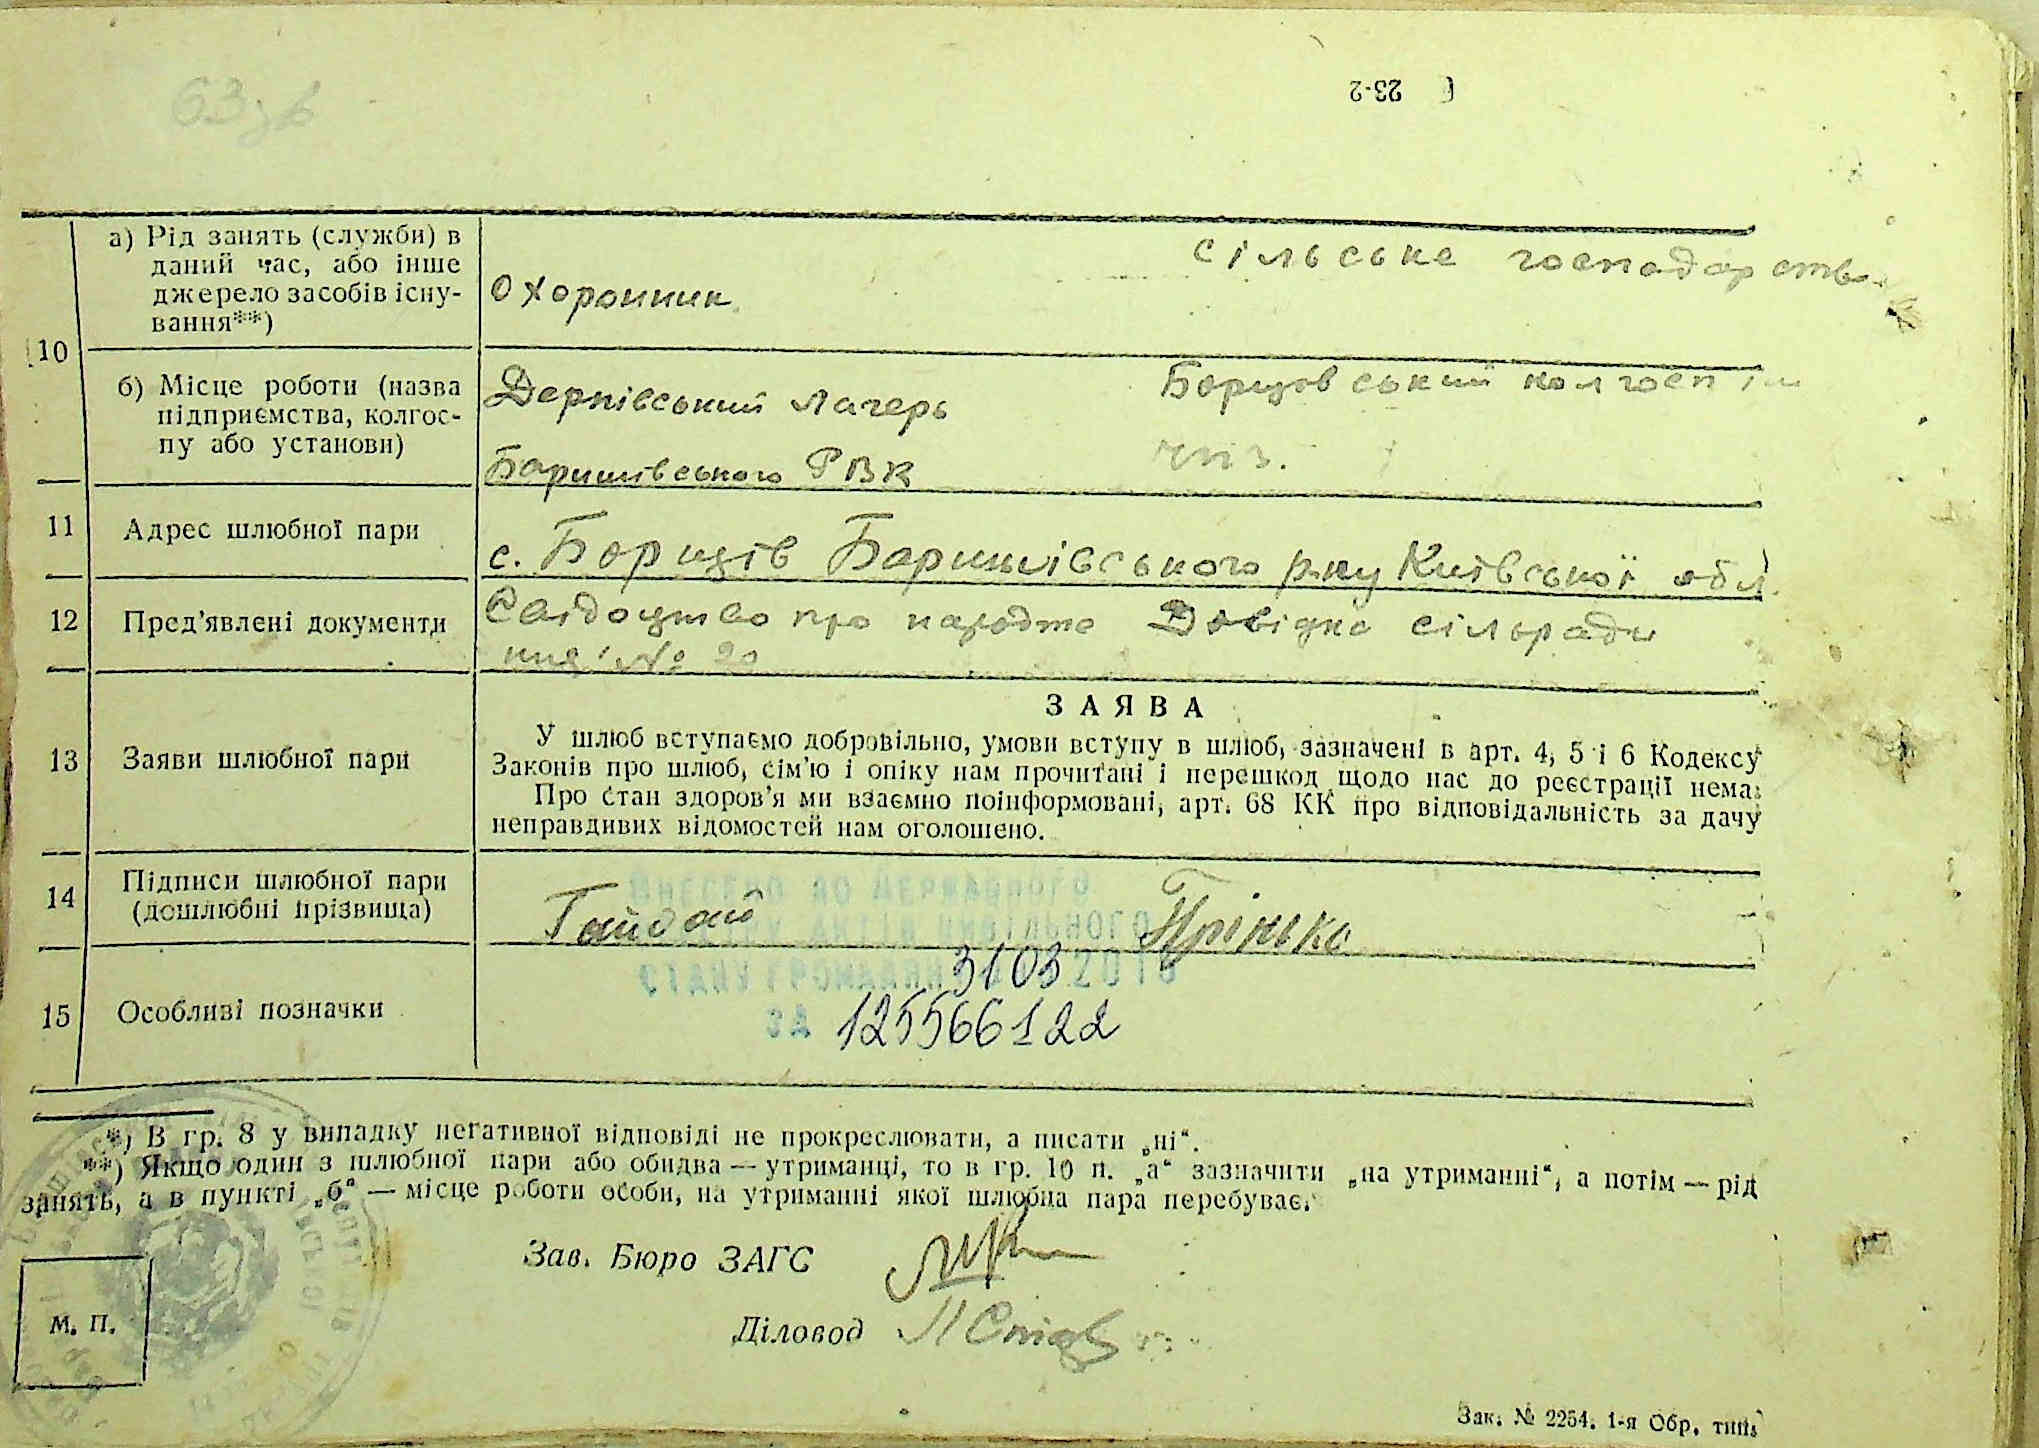 63зв
23-2
а) Рід занять (служби) в
даний час, або інше
джерело засобів існу-
вання**)
Охоронник
сільське господарство
10
б) Місце роботи (назва
підприємства, колгос-
пу або установи)
Дернівський лагерь
Баришівського РВК
Борщовський колгосп ім
11
Адрес шлюбної пари
с. Борщів Баришівського р-ну Київської обл.
12
Пред'явлені документи
Свідоцтво про народже Довідка сільради
ння № 20
13
Заяви шлюбної пари
ЗАЯВА
У шлюб вступаємо добровільно, умови вступу в шлюб, зазначені в арт. 4, 5 і 6 Кодексу
Законів про шлюб, сім'ю і опіку нам прочитані і перешкод щодо нас до реєстрації нема.
Про стан здоров'я ми взаємно поінформовані, арт. 68 КК про відповідальність за дачу
неправдивих відомостей нам оголошено.
14
Підписи шлюбної пари
(дошлюбні прізвища)
Гайдай
Прінько
ВНЕСЕНО ДО ДЕРЖАВНОГО
РЕЄСТРУ АКТІВ ЦИВІЛЬНОГО
СТАНУ ГРОМАДЯН 3103 2018
ЗА 125566122
15
Особливі позначки
*) В гр. 8 у випадку негативної відповіді не прокреслювати, а писати „ні“.
**) Якщо один з шлюбної пари або обидва — утриманці, то в гр. 10 п. „а“ зазначити „на утриманні“, а потім — рід
занять, а в пункті „б“ — місце роботи особи, на утриманні якої шлюбна пара перебуває.
Зав. Бюро ЗАГС
М. П.
Діловод
Зак. № 2254. 1-я Обр. тип.